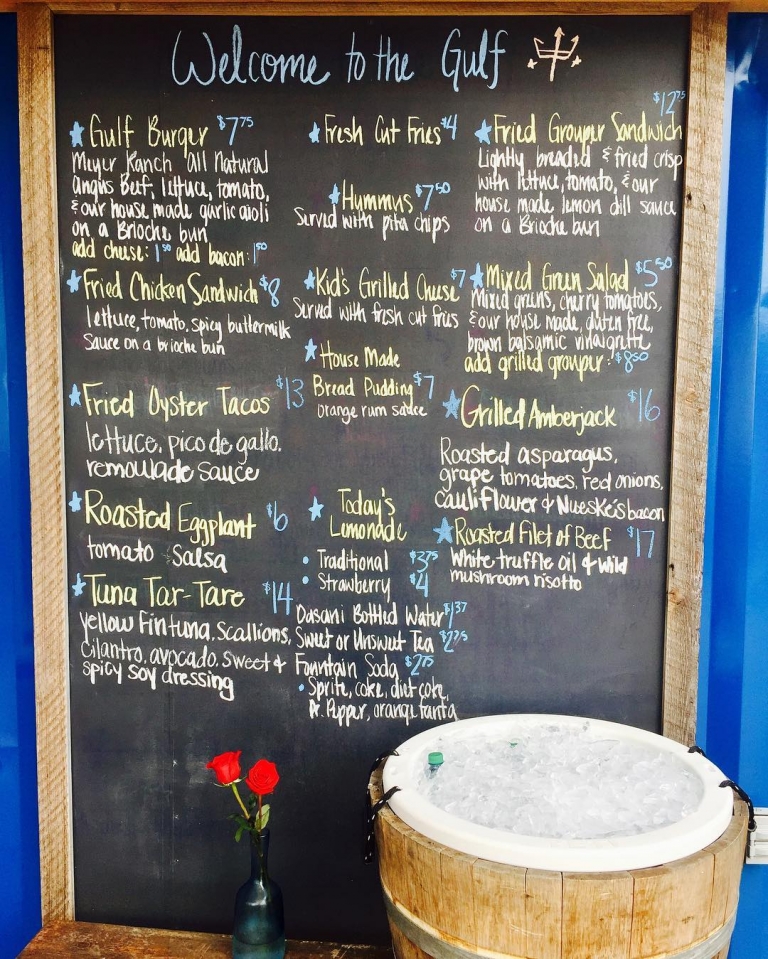 Welcome to the Gulf
Gulf Burger $7.75
Meyer Ranch All Natural
angus Beef, lettuce, tomato,
& our house made garlic aioli
on a Brioche bun
add cheese: 1.50 add bacon: 1.50
Fried Chicken Sandwich $8
lettuce, tomato, spicy buttermilk
Sauce on a brioche bun
Fried Oyster Tacos $13
lettuce, pico de gallo,
remoulade sauce
Roasted Eggplant $6
tomato salsa
Tuna Tar-Tare $14
yellow Fin tuna, scallions,
cilantro, avocado, sweet &
spicy soy dressing
Fresh Cut Fries $4
Hummus $7.50
Served with pita chips
Kid's Grilled Cheese $7
Served with fresh cut fries
House Made
Bread Pudding $7
orange rum sauce
Today's
Lemonade
• Traditional $3.75
• Strawberry $4
Dasani Bottled Water $1.37
Sweet or Unsweet Tea $2.75
Fountain Soda $2.75
• Sprite, coke, diet coke,
Dr. Pepper, orange fanta
$12.75
Fried Grouper Sandwich
Lightly breaded & fried crisp
with lettuce, tomato, & our
house made lemon dill sauce
on a Brioche bun
Mixed Green Salad $5.50
Mixed greens, cherry tomatoes,
& our house made, gluten free,
brown balsamic vinaigrette
add grilled grouper: $8.50
Grilled Amberjack $16
Roasted asparagus,
grape tomatoes, red onions,
cauliflower & Nueske's bacon
Roasted Filet of Beef $17
White truffle oil & wild
mushroom risotto